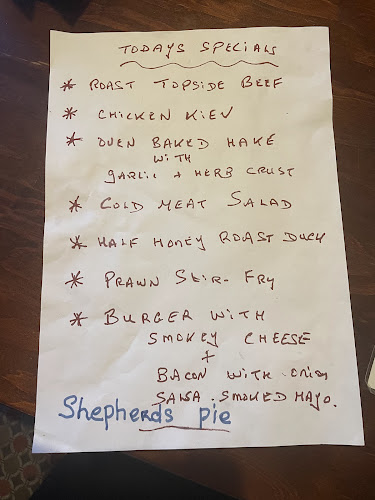 TODAYS SPECIALS
* ROAST TOPSIDE BEEF
* CHICKEN KIEV
* OVEN BAKED HAKE
WITH
GARLIC + HERB CRUST
* COLD MEAT SALAD
* HALF HONEY ROAST DUCK
* PRAWN STIR-FRY
* BURGER WITH
SMOKEY CHEESE
+
BACON WITH CRISPY
SALSA . SMOKED MAYO.
Shepherds pie